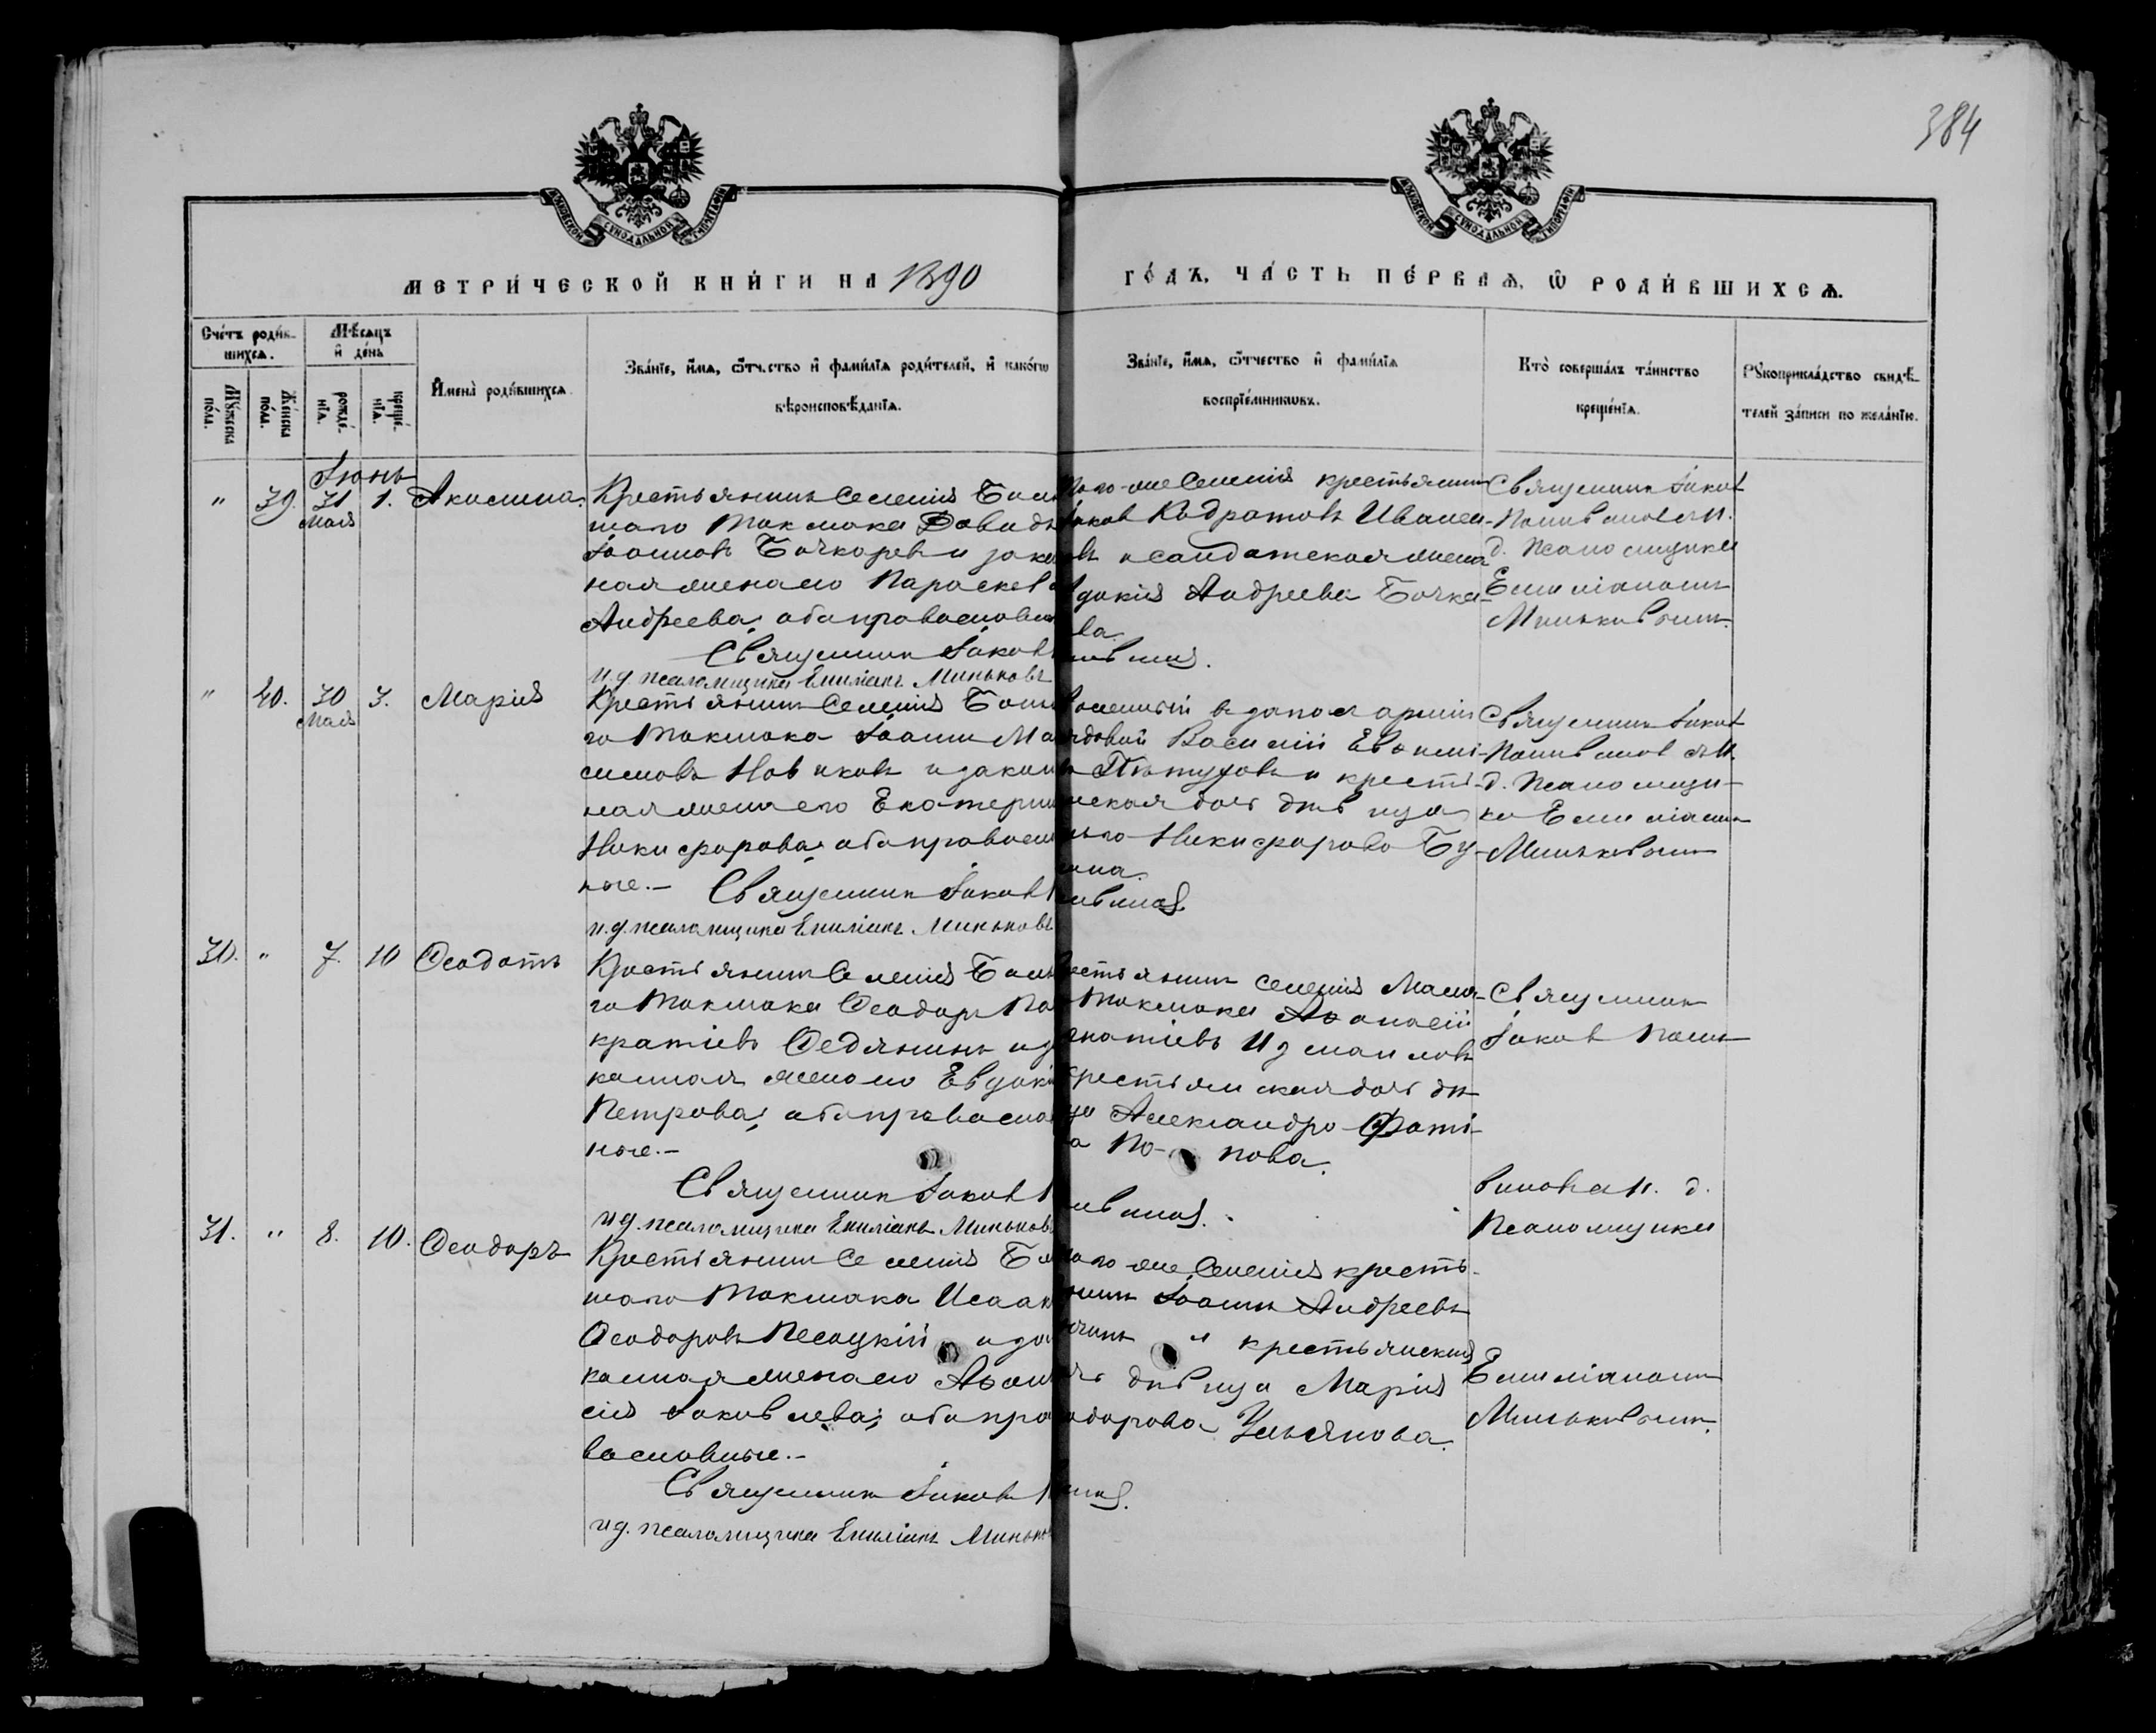 384
МОСКОВСКОЙ СѴНОДАЛЬНОЙ ТИПОГРАФІИ
МОСКОВСКОЙ СѴНОДАЛЬНОЙ ТИПОГРАФІИ
МЕТРИ́ЧЕСКОЙ КНИ́ГИ НА 1890
ГО́ДЪ, ЧА́СТЬ ПЕ́РВАѦ, Ѽ РОДИ́ВШИХСѦ.
Сче́тъ роди́в-
шихсѧ.
Мѣ́сѧцъ
и҆ де́нь
Мꙋ́жеска по́ла.
Же́нска по́ла.
рожде́-
нїѧ.
креще́-
нїѧ.
И҆мена̀ роди́вшихсѧ
Зва́нїе, и҆́мѧ, ѻ҆́тчество и҆ фами́лїѧ роди́телей, и҆ како́гѡ
вѣроисповѣ́данїѧ.
Зва́нїе, и҆́мѧ, ѻ҆́тчество и҆ фами́лїѧ
воспрїе́мникѡвъ.
Кто̀ соверша́лъ та́инство
креще́нїѧ.
Рꙋкоприкла́дство свидѣ́-
телей за́писи по жела́нїю.
Іюнь
" 39. 31 1. Акилина.
Мая
Крестьянинъ селенія Боль
шаго Токмака Давидъ
Іоанновъ Бочкоревъ и зако
ная жена его Параскева
Андреева, оба православн
Священникъ Іаковъ
и.д. псаломщика Емиліанъ Миньковъ
того-же селенія крестьянинъ
Іаковъ Кодратовъ Иванен-
ковъ и солдатская жена
Евдокія Андреева Бочка-
ва.
Священникъ Іаковъ
Поливановъ и.
д. псаломщика
Емиліаномъ
Миньковымъ.
" 40. 30 3. Марія
Мая
Крестьянинъ селенія Больш
го Токмака Іоаннъ Ма
симовъ Новиковъ и закон
ная жена его Екатерин
Никифорова, оба православ
ные.- Священникъ Іаковъ
и.д. псаломщика Емиліанъ Миньковъ
уволенный в запас арміи
рядовой Василій Евфимі-
Пѣтуховъ и кресть-
янская дочь дѣвица
Никифорова Бу-
ина.
Священникъ Іаковъ
Поливановъ и.
д. псаломщи-
ка Емиліаномъ
Миньковымъ
30. " 7. 10 Ѳеодотъ
Крестьянинъ селенія Боль
го Токмака Ѳеодоръ Пан
кратіевъ Ѳедянинъ и за
конная жена его Евдокі
Петрова, оба православ
ные.-
Священникъ Іаковъ
и.д. псаломщика Емиліанъ Миньковъ
крестьянинъ селенія Мало-
Токмака Аѳанасій
Игнатіевъ Измаиловъ
крестьянская дочь дѣ
вица Александра Фоті-
а По- пова.
Священникъ
Іаковъ Поли-
вановъ и. д.
псаломщика
31. " 8. 10. Ѳеодоръ
Крестьянинъ селенія Бо
шаго Токмака Исаак
Ѳеодоровъ Песоцкій и за
конная жена его Аѳана
сія Іаковлева, оба пра
вославные.-
Священникъ Іаковъ
и.д. псаломщика Емиліанъ Миньков
того же селенія кресть-
янинъ Іоаннъ Андреевъ
и крестьянская
дочь дѣвица Марія
Ѳеодорова Ульянова.
Емиліаномъ
Миньковымъ.